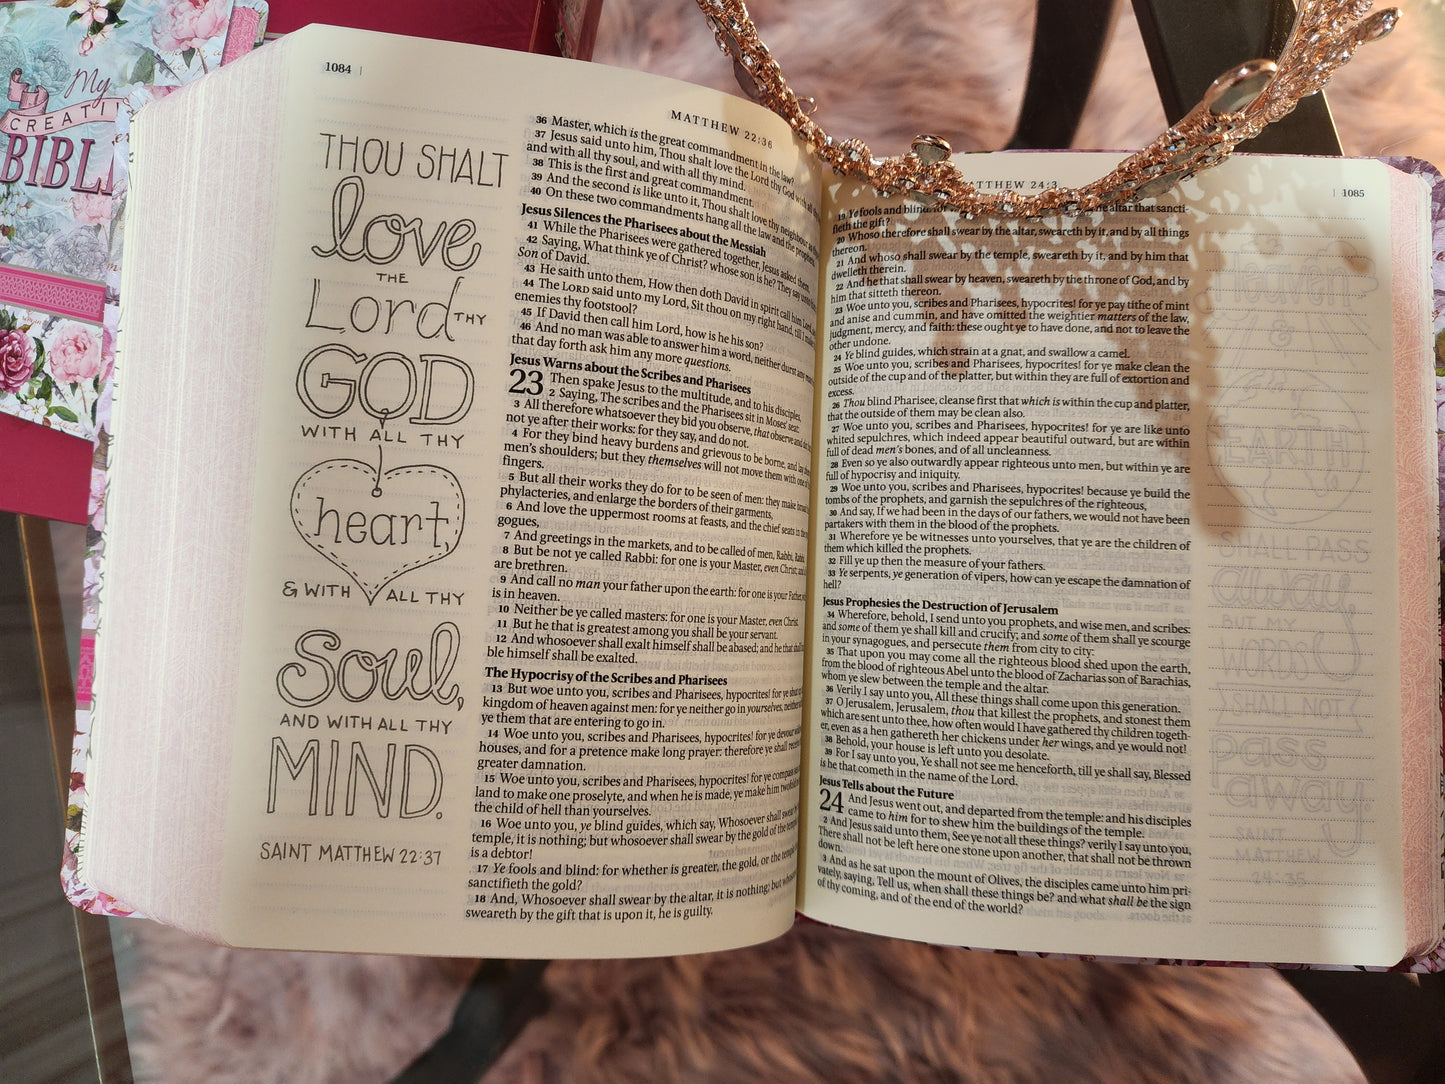 My
CREATI
BIBL
1084
MATTHEW 22:36
THOU SHALT
love
THE
Lord THY
GOD
WITH ALL THY
heart,
& WITH ALL THY
Soul,
AND WITH ALL THY
MIND.
SAINT MATTHEW 22:37
36 Master, which is the great commandment in the law?
37 Jesus said unto him, Thou shalt love the Lord thy God with all thy
and with all thy soul, and with all thy mind.
38 This is the first and great commandment.
39 And the second is like unto it, Thou shalt love thy neighbour as
40 On these two commandments hang all the law and the prophets.
Jesus Silences the Pharisees about the Messiah
41 While the Pharisees were gathered together, Jesus asked them,
42 Saying, What think ye of Christ? whose son is he? They say unto
Son of David.
43 He saith unto them, How then doth David in spirit call him Lord,
44 The LORD said unto my Lord, Sit thou on my right hand, till I make
enemies thy footstool?
45 If David then call him Lord, how is he his son?
46 And no man was able to answer him a word, neither durst any
that day forth ask him any more questions.
Jesus Warns about the Scribes and Pharisees
23 Then spake Jesus to the multitude, and to his disciples,
2 Saying, The scribes and the Pharisees sit in Moses' seat:
3 All therefore whatsoever they bid you observe, that observe and do;
not ye after their works: for they say, and do not.
4 For they bind heavy burdens and grievous to be borne, and lay
men's shoulders; but they themselves will not move them with one of
fingers.
5 But all their works they do for to be seen of men: they make broad
phylacteries, and enlarge the borders of their garments,
6 And love the uppermost rooms at feasts, and the chief seats in the
gogues,
7 And greetings in the markets, and to be called of men, Rabbi, Rabbi.
8 But be not ye called Rabbi: for one is your Master, even Christ; and
are brethren.
9 And call no man your father upon the earth: for one is your Father,
is in heaven.
10 Neither be ye called masters: for one is your Master, even Christ.
11 But he that is greatest among you shall be your servant.
12 And whosoever shall exalt himself shall be abased; and he that shall
ble himself shall be exalted.
The Hypocrisy of the Scribes and Pharisees
13 But woe unto you, scribes and Pharisees, hypocrites! for ye shut up
kingdom of heaven against men: for ye neither go in yourselves, neither
ye them that are entering to go in.
14 Woe unto you, scribes and Pharisees, hypocrites! for ye devour
houses, and for a pretence make long prayer: therefore ye shall receive
greater damnation.
15 Woe unto you, scribes and Pharisees, hypocrites! for ye compass sea
land to make one proselyte, and when he is made, ye make him twofold
the child of hell than yourselves.
16 Woe unto you, ye blind guides, which say, Whosoever shall swear by
temple, it is nothing; but whosoever shall swear by the gold of the temple,
is a debtor!
17 Ye fools and blind: for whether is greater, the gold, or the temple
sanctifieth the gold?
18 And, Whosoever shall swear by the altar, it is nothing; but
sweareth by the gift that is upon it, he is guilty.
MATTHEW 24:3
1085
19 Ye fools and blind: for altar that sancti-
fieth the gift?
20 Whoso therefore shall swear by the altar, sweareth by it, and by all things
thereon.
21 And whoso shall swear by the temple, sweareth by it, and by him that
dwelleth therein.
22 And he that shall swear by heaven, sweareth by the throne of God, and by
him that sitteth thereon.
23 Woe unto you, scribes and Pharisees, hypocrites! for ye pay tithe of mint
and anise and cummin, and have omitted the weightier matters of the law,
judgment, mercy, and faith: these ought ye to have done, and not to leave the
other undone.
24 Ye blind guides, which strain at a gnat, and swallow a camel.
25 Woe unto you, scribes and Pharisees, hypocrites! for ye make clean the
outside of the cup and of the platter, but within they are full of extortion and
excess.
26 Thou blind Pharisee, cleanse first that which is within the cup and platter,
that the outside of them may be clean also.
27 Woe unto you, scribes and Pharisees, hypocrites! for ye are like unto
whited sepulchres, which indeed appear beautiful outward, but are within
full of dead men's bones, and of all uncleanness.
28 Even so ye also outwardly appear righteous unto men, but within ye are
full of hypocrisy and iniquity.
29 Woe unto you, scribes and Pharisees, hypocrites! because ye build the
tombs of the prophets, and garnish the sepulchres of the righteous,
30 And say, If we had been in the days of our fathers, we would not have been
partakers with them in the blood of the prophets.
31 Wherefore ye be witnesses unto yourselves, that ye are the children of
them which killed the prophets.
32 Fill ye up then the measure of your fathers.
33 Ye serpents, ye generation of vipers, how can ye escape the damnation of
hell?
Jesus Prophesies the Destruction of Jerusalem
34 Wherefore, behold, I send unto you prophets, and wise men, and scribes:
and some of them ye shall kill and crucify; and some of them shall ye scourge
in your synagogues, and persecute them from city to city:
35 That upon you may come all the righteous blood shed upon the earth,
from the blood of righteous Abel unto the blood of Zacharias son of Barachias,
whom ye slew between the temple and the altar.
36 Verily I say unto you, All these things shall come upon this generation.
37 O Jerusalem, Jerusalem, thou that killest the prophets, and stonest them
which are sent unto thee, how often would I have gathered thy children togeth-
er, even as a hen gathereth her chickens under her wings, and ye would not!
38 Behold, your house is left unto you desolate.
39 For I say unto you, Ye shall not see me henceforth, till ye shall say, Blessed
is he that cometh in the name of the Lord.
Jesus Tells about the Future
24 And Jesus went out, and departed from the temple: and his disciples
came to him for to shew him the buildings of the temple.
2 And Jesus said unto them, See ye not all these things? verily I say unto you,
There shall not be left here one stone upon another, that shall not be thrown
down.
3 And as he sat upon the mount of Olives, the disciples came unto him pri-
vately, saying, Tell us, when shall these things be? and what shall be the sign
of thy coming, and of the end of the world?
Heaven
&
EARTH
SHALL PASS
away,
BUT MY
WORDS
SHALL NOT
pass
away
SAINT
MATTHEW
24:35